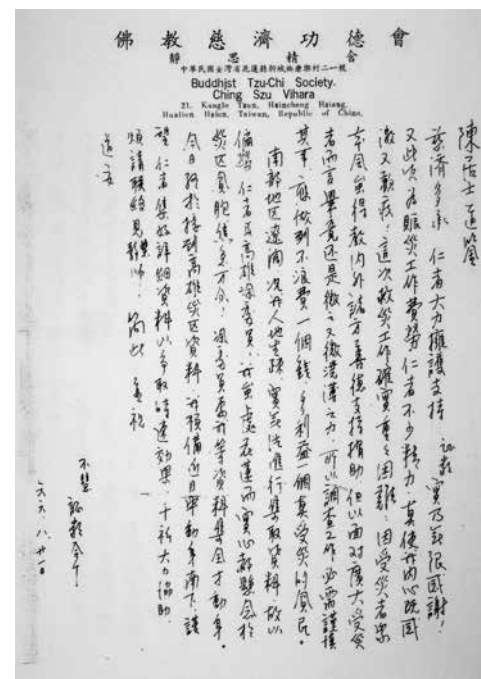 佛教慈濟功德會
靜思精舍
中華民國台灣省花蓮縣新城鄉康樂村二一號
Buddhjst Tzu-Chi Society.
Ching Szu Vihara
21. Kangle Tsun, Hsincheng Hsiang.
Hualien Hsien, Taiwan, Republic of China.
陳居士道鑒
慈濟多承 仁者大力擁護支持 証嚴實乃無限感謝！
又此次為賑災工作費勞仁者不少精力，真使我內心既感
激又歡疚！這次救災工作確實重重困難：因受災者眾
本會雖得教內外諸方善德支持捐助，但以面對廣大受災
者而言，畢竟還是微之又微淺薄之力，所以調查工作必需謹慎
其事，應做到不浪費一個錢，多利益一個真受災的貧民。
南部地区遼闊，況我人地生疏，實無法進行集取資料，故以
偏勞 仁者及高雄涂委員，我雖處在花蓮而實心都懸念於
災区貧胞焦急万分！涂委員處我等資料集全才動身。
今日終於接到高雄災区資料，我預備近日 動身南下，謹
望 仁者集妥詳細資料以爭取時速效果，千祈大力協助。
煩請聯絡見 師。耑此 並祝
道安
証嚴合十
六六、八、廿一日